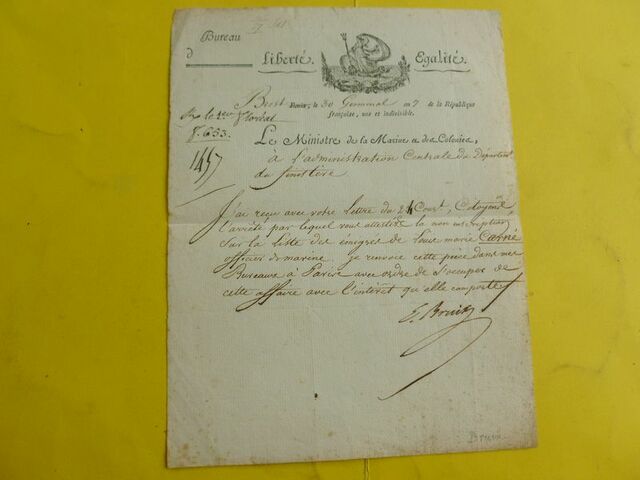 Bureau
d
Liberté. Egalité.
Brest le 30 Germinal an 7 de la République
française, une et indivisible.
Rx le 1er floréal
f. 653.
1457
Le Ministre de la Marine et des Colonies,
à l'administration Centrale du Départemt
du finistère
J'ai reçu avec votre lettre du 24 Court, Citoyens,
l'arrêté par lequel vous attestez la non inscription
sur la liste des émigrés de Louis marie Carné
officier de marine. je renvoie cette pièce dans mes
Bureaux à Paris avec ordre de s'occuper de
cette affaire avec l'intérêt qu'elle comporte
E. Bruix